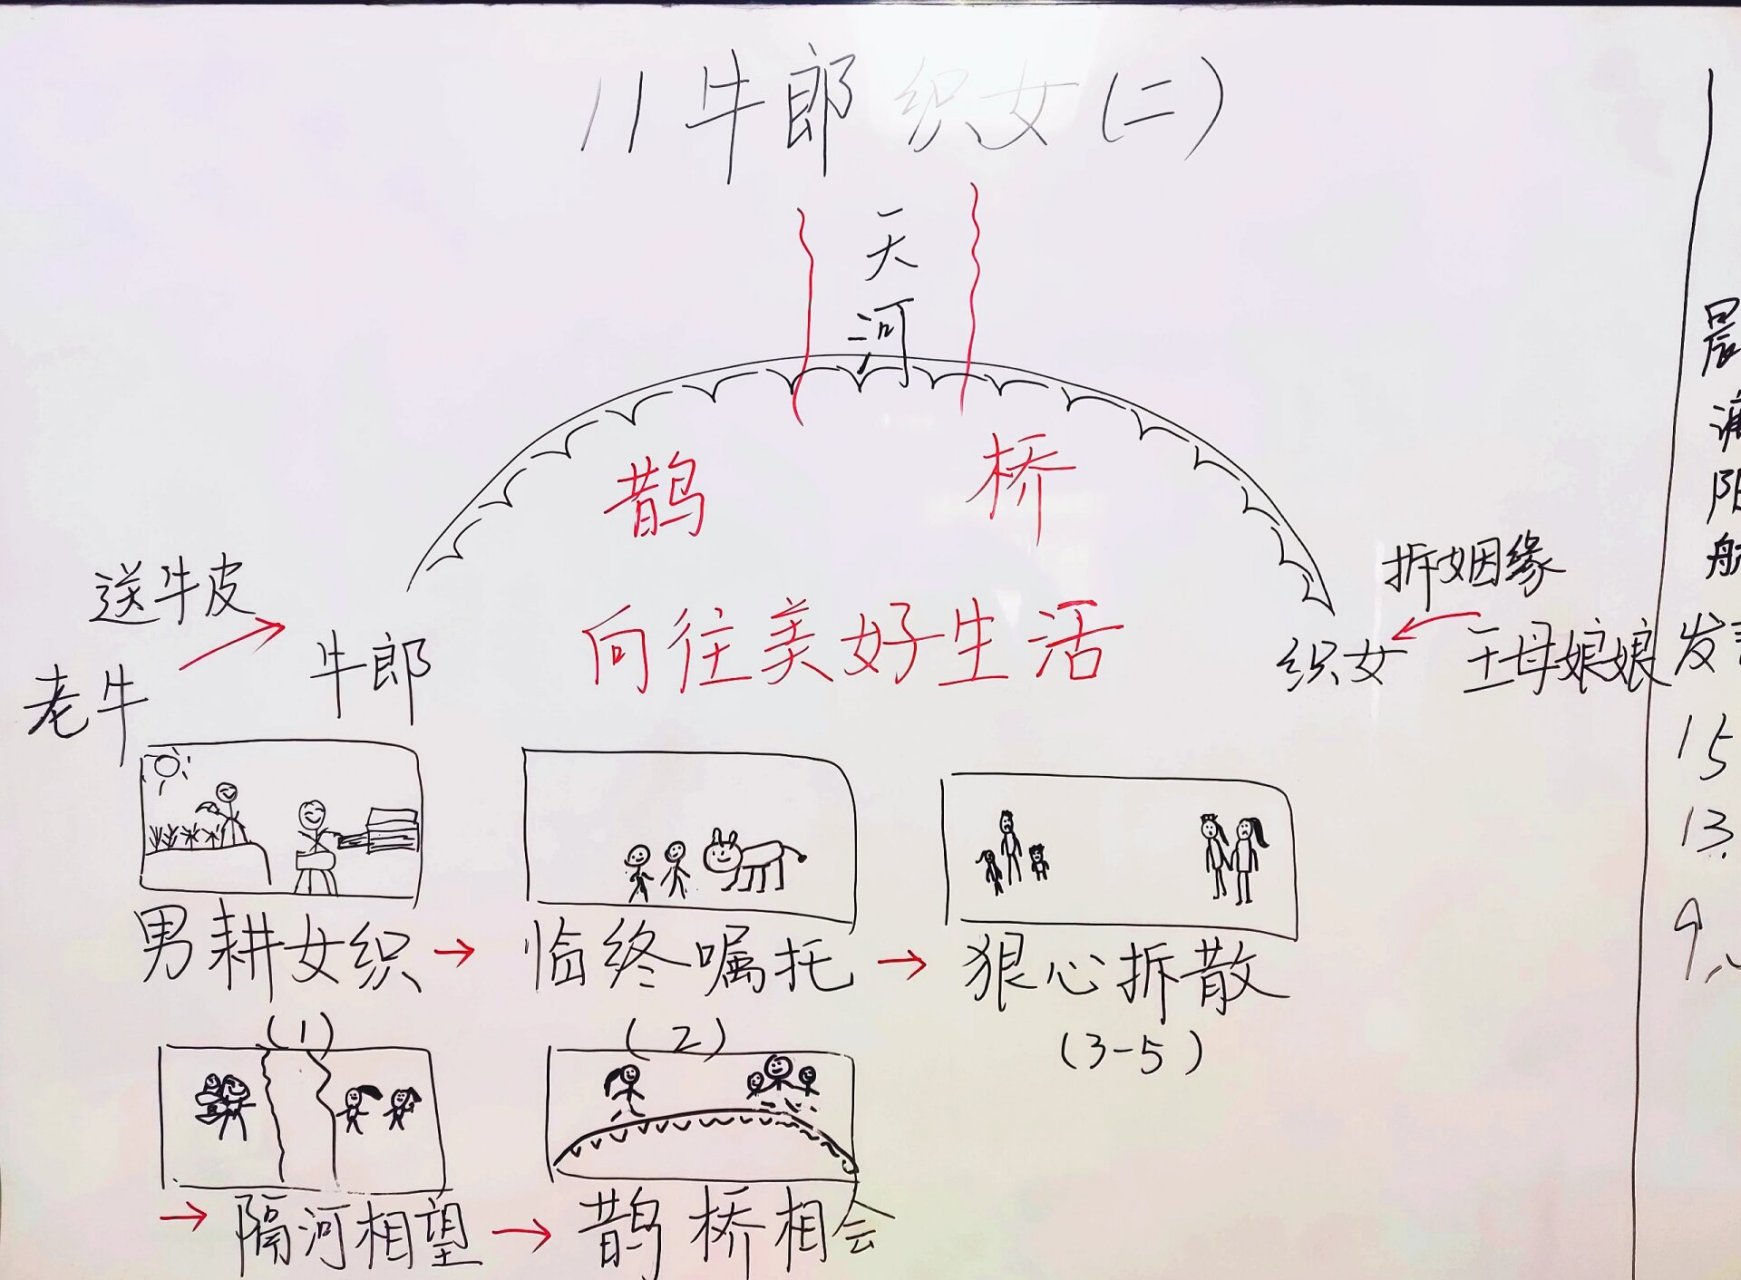 11 牛郎织女(二)
天河
鹊桥
向往美好生活
送牛皮
老牛
牛郎
拆姻缘
织女
王母娘娘
男耕女织 → 临终嘱托 → 狠心拆散
(1) (2) (3-5)
→ 隔河相望 → 鹊桥相会
晨
阳
航
发
15
13.
9、